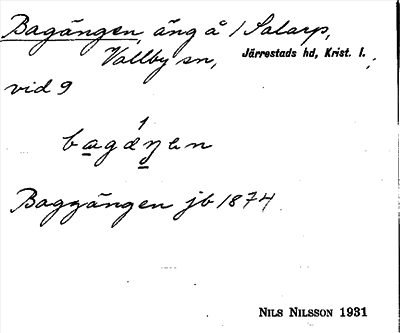 Bagängen, äng å 1 Salarp,
Vallby sn, Järrestads hd, Krist. l.;
vid 9
bagǽŋen
Baggängen jb 1874
NILS NILSSON 1931